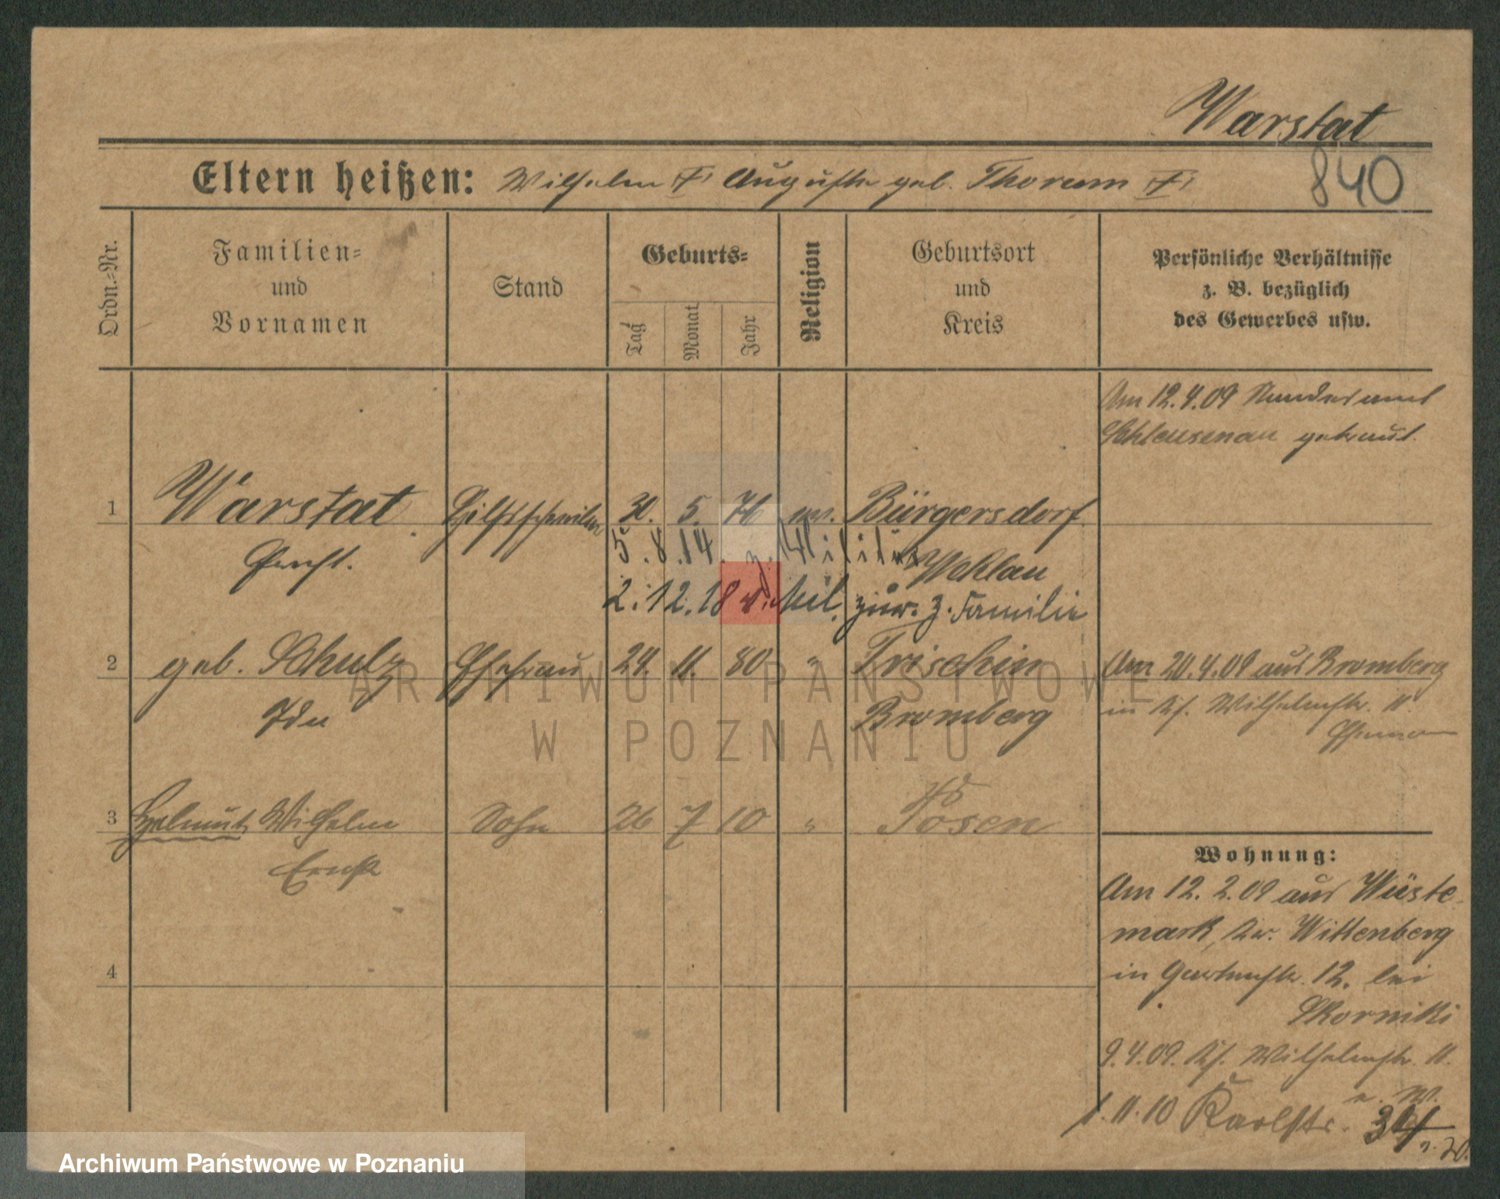 Warstat
840
Eltern heißen: Wilhelm †, Auguste geb. Thorum †,
Ordn.-Nr.
Familien-
und
Vornamen
Stand
Geburts-
Tag
Monat
Jahr
Religion
Geburtsort
und
Kreis
Persönliche Verhältnisse
z. B. bezüglich
des Gewerbes usw.
Am 12.4.09 Standesamt
Schleusenau getraut.
1 Warstat 30. 5. 76 ev. Bürgersdorf
Ernst. 5.8.14. z. Militär Wehlau
2.12.18 v. Mil. zur. z. Familie
2 geb. Schulz Ehefrau 24. 11. 80 " Trischin
Am 20.4.09 aus Bromberg
Ida Bromberg
in Wilhelmstr. 11
3 Helmut Wilhelm Sohn 26 7 10 " Posen
Ernst
4
Wohnung:
Am 12.2.09 aus Wüste-
mark, Kr. Wittenberg
in Gartenstr. 12. bei
Skorniki
9.4.09. Wilhelmstr. 11.
1.11.10 Karlstr. 34
ARCHIWUM PAŃSTWOWE
W POZNANIU
Archiwum Państwowe w Poznaniu